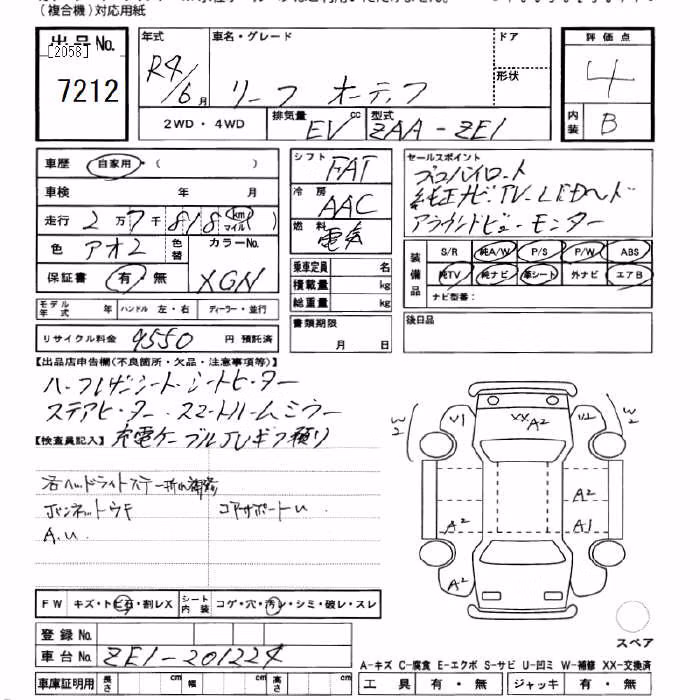 (複合機)対応用紙
出品No.
[2058]
7212
年式 R4/6月
車名・グレード リーフ オーテック
ドア
形状
評価点 4
内装 B
2WD・4WD
排気量 EV cc
型式 ZAA-ZE1
車歴 自家用・( )
車検 年 月
走行 2万7千818 km(マイル)
色 アオ2
色替
カラーNo. XGN
保証書 有・無
シフト FAT
冷房 AAC
燃料 電気
乗車定員 名
積載量 kg
総重量 kg
セールスポイント
プロパイロット
純正ナビ.TV.LEDヘッド
アラウンドビューモニター
装備品
S/R 純A/W P/S P/W ABS
純TV 純ナビ 革シート 外ナビ エアB
ナビ型番:
モデル年式 年 ハンドル 左・右 ディーラー・並行
書類期限 月 日
後日品
リサイクル料金 9550 円 預託済
【出品店申告欄(不良箇所・欠品・注意事項等)】
ハーフレザーシート・シートヒーター
ステアヒーター.スマートルームミラー
【検査員記入】
充電ケーブルJUギフ預り
右ヘッドライトステー折れ補修
ボンネットウキ コアサポートU
A.U.
W2 V1 XX A2 U2 W2
A2
A2 A1
A2
スペア
FW キズ・トビ石・割レX
シート内装 コゲ・穴・汚レ・シミ・破レ・スレ
登録No.
車台No. ZE1-201224
車庫証明用 長さ cm 幅 cm 高さ cm
A-キズ C-腐食 E-エクボ S-サビ U-凹ミ W-補修 XX-交換済
工具 有・無 ジャッキ 有・無